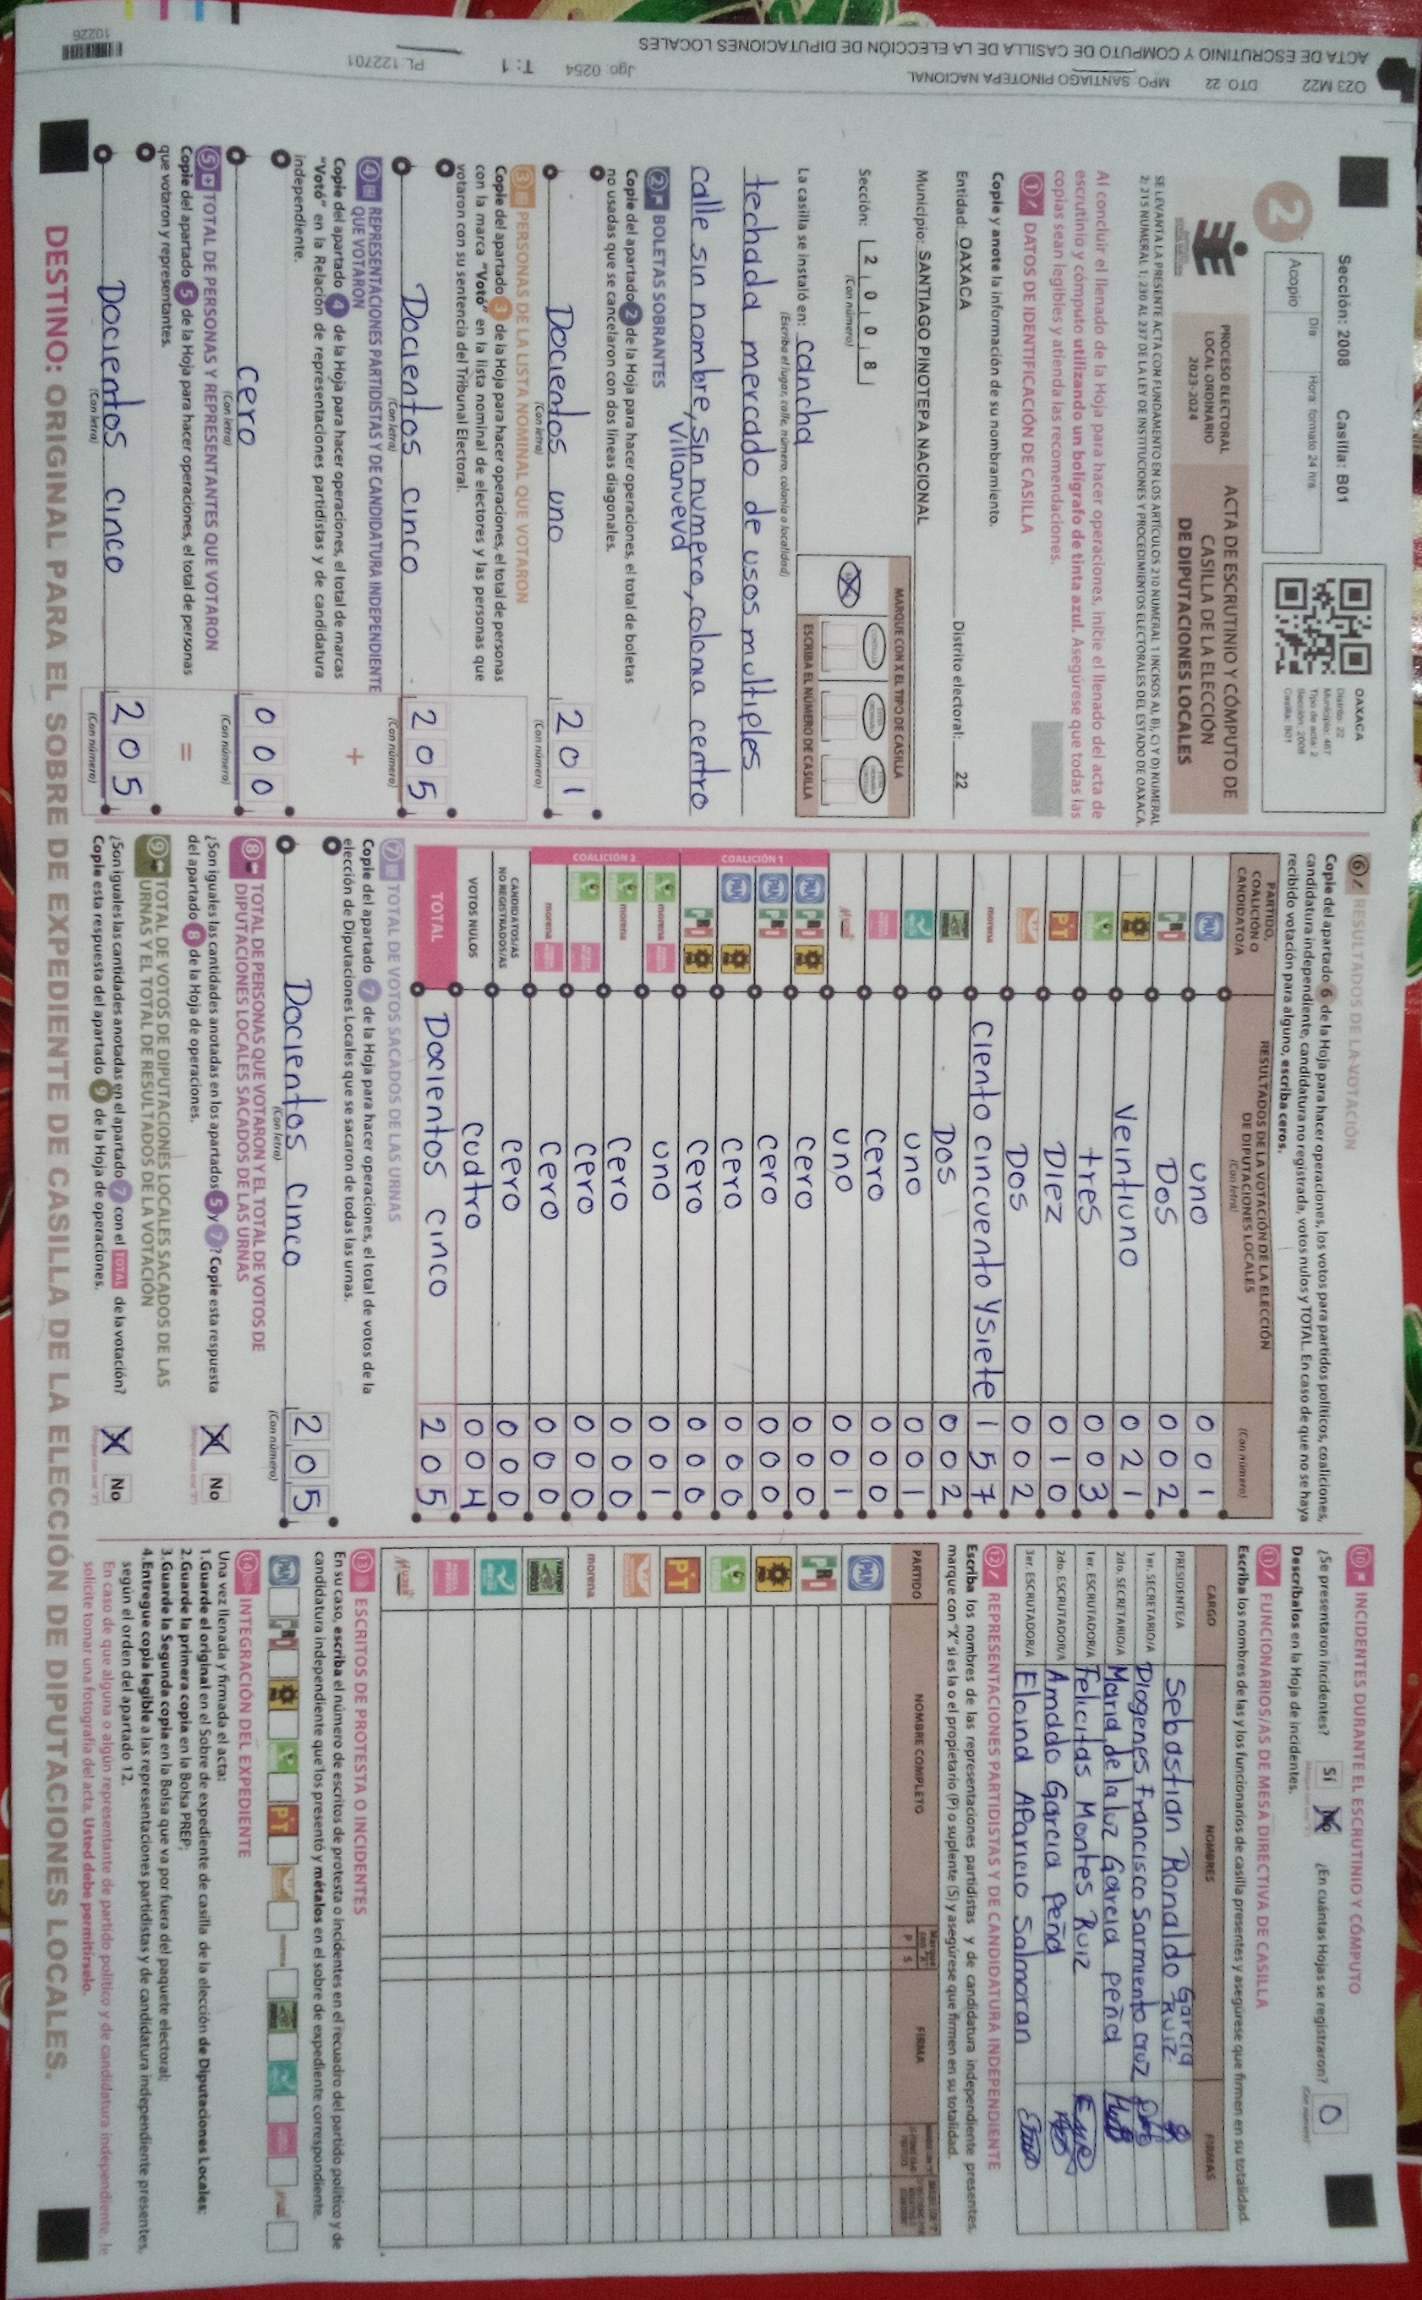 Sección: 2008 Casilla: B01
2
Acopio
Día
Hora: formato 24 hrs.
OAXACA
Distrito: 22
Municipio: 467
Tipo de acta: 2
Sección: 2008
Casilla: B01
PROCESO ELECTORAL
LOCAL ORDINARIO
2023-2024
ACTA DE ESCRUTINIO Y CÓMPUTO DE
CASILLA DE LA ELECCIÓN
DE DIPUTACIONES LOCALES
SE LEVANTA LA PRESENTE ACTA CON FUNDAMENTO EN LOS ARTÍCULOS 210 NUMERAL 1 INCISOS A), B), C) Y D) NUMERAL
2; 215 NUMERAL 1; 230 AL 237 DE LA LEY DE INSTITUCIONES Y PROCEDIMIENTOS ELECTORALES DEL ESTADO DE OAXACA.
Al concluir el llenado de la Hoja para hacer operaciones, inicie el llenado del acta de
escrutinio y cómputo utilizando un bolígrafo de tinta azul. Asegúrese que todas las
copias sean legibles y atienda las recomendaciones.
1 DATOS DE IDENTIFICACIÓN DE CASILLA
Copie y anote la información de su nombramiento.
Entidad: OAXACA Distrito electoral: 22
Municipio: SANTIAGO PINOTEPA NACIONAL
Sección: 2 0 0 8
(Con número)
MARQUE CON X EL TIPO DE CASILLA
ESCRIBA EL NÚMERO DE CASILLA
La casilla se instaló en: cancha
(Escriba el lugar, calle, número, colonia o localidad)
techada mercado de usos multiples
calle sin nombre, sin numero, colonia centro
Villanueva
2 BOLETAS SOBRANTES
Copie del apartado 2 de la Hoja para hacer operaciones, el total de boletas
no usadas que se cancelaron con dos líneas diagonales.
Docientos uno 201
(Con letra) (Con número)
3 PERSONAS DE LA LISTA NOMINAL QUE VOTARON
Copie del apartado 3 de la Hoja para hacer operaciones, el total de personas
con la marca "Votó" en la lista nominal de electores y las personas que
votaron con su sentencia del Tribunal Electoral.
Docientos cinco 205
(Con letra) (Con número)
4 REPRESENTACIONES PARTIDISTAS Y DE CANDIDATURA INDEPENDIENTE
QUE VOTARON
Copie del apartado 4 de la Hoja para hacer operaciones, el total de marcas
"Votó" en la Relación de representaciones partidistas y de candidatura
independiente.
+
cero 000
(Con letra) (Con número)
5 TOTAL DE PERSONAS Y REPRESENTANTES QUE VOTARON
Copie del apartado 5 de la Hoja para hacer operaciones, el total de personas
que votaron y representantes.
=
Docientos cinco 205
(Con letra) (Con número)
6 RESULTADOS DE LA VOTACIÓN
Copie del apartado 6 de la Hoja para hacer operaciones, los votos para partidos políticos, coaliciones,
candidatura independiente, candidatura no registrada, votos nulos y TOTAL. En caso de que no se haya
recibido votación para alguno, escriba ceros.
PARTIDO,
COALICIÓN O
CANDIDATO/A
RESULTADOS DE LA VOTACIÓN DE LA ELECCIÓN
DE DIPUTACIONES LOCALES
(Con letra)
(Con número)
PAN uno 001
PRI Dos 002
Veintiuno 021
tres 003
PT Diez 010
Dos 002
morena ciento cincuenta y siete 157
Dos 002
uno 001
cero 000
uno 001
COALICIÓN 1
PAN PRI cero 000
PAN PRI cero 000
PAN cero 000
PRI cero 000
COALICIÓN 2
morena uno 001
morena cero 000
cero 000
morena cero 000
CANDIDATOS/AS
NO REGISTRADOS/AS cero 000
VOTOS NULOS cuatro 004
TOTAL Docientos cinco 205
7 TOTAL DE VOTOS SACADOS DE LAS URNAS
Copie del apartado 7 de la Hoja para hacer operaciones, el total de votos de la
elección de Diputaciones Locales que se sacaron de todas las urnas.
Docientos cinco 205
(Con letra) (Con número)
8 TOTAL DE PERSONAS QUE VOTARON Y EL TOTAL DE VOTOS DE
DIPUTACIONES LOCALES SACADOS DE LAS URNAS
¿Son iguales las cantidades anotadas en los apartados 5 y 7? Copie esta respuesta
del apartado 8 de la Hoja de operaciones.
No
9 TOTAL DE VOTOS DE DIPUTACIONES LOCALES SACADOS DE LAS
URNAS Y EL TOTAL DE RESULTADOS DE LA VOTACIÓN
¿Son iguales las cantidades anotadas en el apartado 7 con el TOTAL de la votación?
Copie esta respuesta del apartado 9 de la Hoja de operaciones.
No
10 INCIDENTES DURANTE EL ESCRUTINIO Y CÓMPUTO
¿Se presentaron incidentes? Sí No ¿En cuántas Hojas se registraron? 0
Descríbalos en la Hoja de incidentes.
11 FUNCIONARIOS/AS DE MESA DIRECTIVA DE CASILLA
Escriba los nombres de las y los funcionarios de casilla presentes y asegúrese que firmen en su totalidad.
CARGO NOMBRES FIRMAS
PRESIDENTE/A Sebastian Ronaldo Garcia Ruiz
1er. SECRETARIO/A Diogenes Francisco Sarmiento cruz
2do. SECRETARIO/A Maria de la luz Garcia peña
1er. ESCRUTADOR/A Felicitas Montes Ruiz
2do. ESCRUTADOR/A Amada Garcia peña
3er. ESCRUTADOR/A Eloina Aparicio Salmoran
12 REPRESENTACIONES PARTIDISTAS Y DE CANDIDATURA INDEPENDIENTE
Escriba los nombres de las representaciones partidistas y de candidatura independiente presentes,
marque con "X" si es la o el propietario (P) o suplente (S) y asegúrese que firmen en su totalidad.
PARTIDO NOMBRE COMPLETO P S FIRMA
PAN
PRI
PT
morena
13 ESCRITOS DE PROTESTA O INCIDENTES
En su caso, escriba el número de escritos de protesta o incidentes en el recuadro del partido político y de
candidatura independiente que los presentó y métalos en el sobre de expediente correspondiente.
PAN PRI PT morena
14 INTEGRACIÓN DEL EXPEDIENTE
Una vez llenada y firmada el acta:
1.Guarde el original en el Sobre de expediente de casilla de la elección de Diputaciones Locales;
2.Guarde la primera copia en la Bolsa PREP;
3.Guarde la Segunda copia en la Bolsa que va por fuera del paquete electoral;
4.Entregue copia legible a las representaciones partidistas y de candidatura independiente presentes,
según el orden del apartado 12.
En caso de que alguna o algún representante de partido político y de candidatura independiente, le
solicite tomar una fotografía del acta, Usted debe permitírselo.
DESTINO: ORIGINAL PARA EL SOBRE DE EXPEDIENTE DE CASILLA DE LA ELECCIÓN DE DIPUTACIONES LOCALES.
O23 M22 DTO. 22 MPO. SANTIAGO PINOTEPA NACIONAL
ACTA DE ESCRUTINIO Y COMPUTO DE CASILLA DE LA ELECCIÓN DE DIPUTACIONES LOCALES
Jgo: 0254 T: 1 PL: 122701
10226